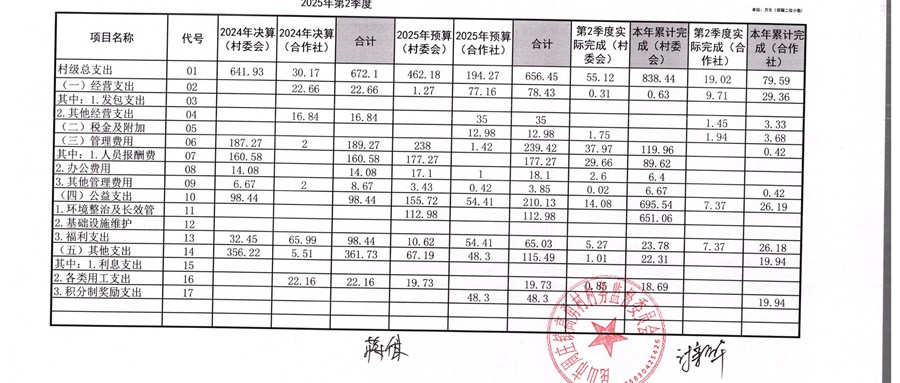 2025年第2季度
单位：万元（保留二位小数）
项目名称 代号 2024年决算（村委会） 2024年决算（合作社） 合计 2025年预算（村委会） 2025年预算（合作社） 合计 第2季度实际完成（村委会） 本年累计完成（村委会） 第2季度完成（合作社） 本年累计完成（合作社）
村级总支出 01 641.93 30.17 672.1 462.18 194.27 656.45 55.12 838.44 19.02 79.59
（一）经营支出 02 22.66 22.66 1.27 77.16 78.43 0.31 0.63 9.71 29.36
其中：1.发包支出 03
2.其他经营支出 04 16.84 16.84 35 35 1.45 3.33
（二）税金及附加 05 12.98 12.98 1.75 1.94 3.68
（三）管理费用 06 187.27 2 189.27 238 1.42 239.42 37.97 119.96 0.42
其中：1.人员报酬费 07 160.58 160.58 177.27 177.27 29.66 89.62
2.办公费用 08 14.08 14.08 17.1 1 18.1 2.6 6.4
3.其他管理费用 09 6.67 2 8.67 3.43 0.42 3.85 0.02 6.67 0.42
（四）公益支出 10 98.44 98.44 155.72 54.41 210.13 14.08 695.54 7.37 26.19
1.环境整治及长效管 11 112.98 112.98 651.06
2.基础设施维护 12
3.福利支出 13 32.45 65.99 98.44 10.62 54.41 65.03 5.27 23.78 7.37 26.18
（五）其他支出 14 356.22 5.51 361.73 67.19 48.3 115.49 1.01 22.31 19.94
其中：1.利息支出 15
2.各类用工支出 16 22.16 22.16 19.73 19.73 0.85 18.69
3.积分制奖励支出 17 48.3 48.3 19.94
昆山市周庄镇高勇村村务监督委员会